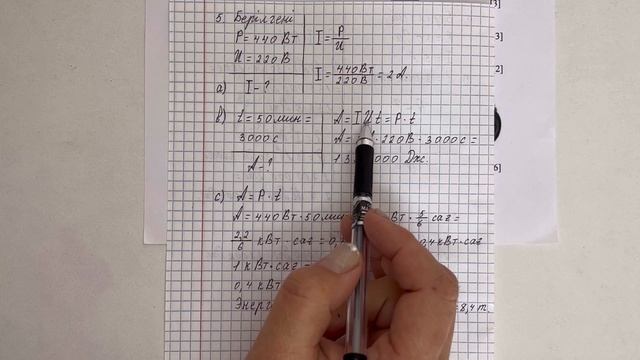 5. Берілгені
P = 440 Вт
U = 220 В
I = P/U
I = 440Вт/220В = 2 А.
а) I - ?
b) t = 50 мин =
3000 с
A - ?
A = I U t = P · t
A = · 220В · 3000 с =
000 Дж.
c) A = P · t
A = 440 Вт · 50 Вт · 5/6 сағ =
2,2/6 кВт · сағ = 0, 0,4 кВт · сағ
1 кВт · сағ =
0,4 кВт
= 8,4 т
3]
3]
2]
6]